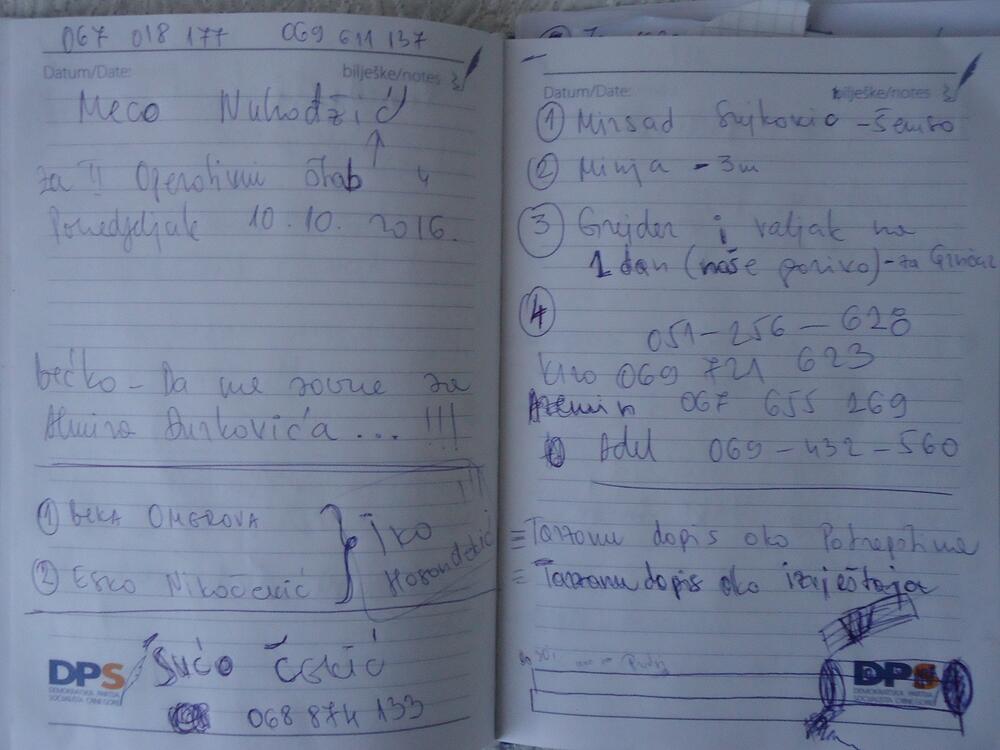 067 018 177 069 611 137
Datum/Date: bilješke/notes
Meco Nuhodžić
za !! Operativni štab u
Ponedjeljak 10.10. 2016.
bećko - Da me zovne za
Almira Durkovića ... !!!
① BEKA OMEROVA
② Esko Nikočević
Iko
!!!
DPS
DEMOKRATSKA PARTIJA
SOCIJALISTA CRNE GORE
Sućo Ćekić
068 874 133
Datum/Date: bilješke/notes
① Mirsad - Šemso
② Minja - 3m
③ Grejder i valjak na
1 dan (naše gorivo) - za
④
051 - 256 - 628
Kiro 069 721 623
067 655 269
Adel 069 - 432 - 560
= dopis oko
= dopis oko izvještaja
DPS
DEMOKRATSKA PARTIJA
SOCIJALISTA CRNE GORE